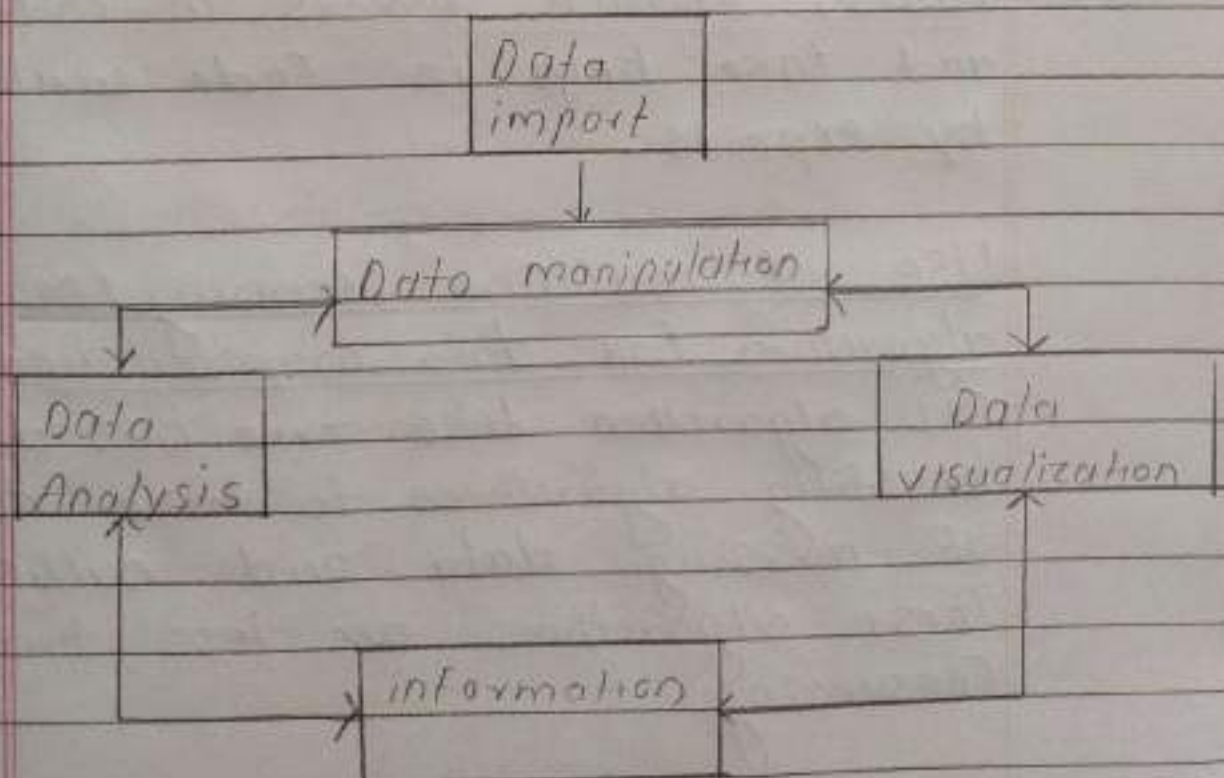 Data
import
Data manipulation
Data
Analysis
Data
visualization
information